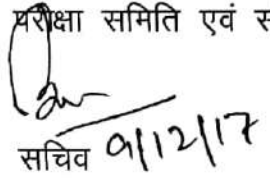 परीक्षा समिति एवं स
सचिव 9/12/17